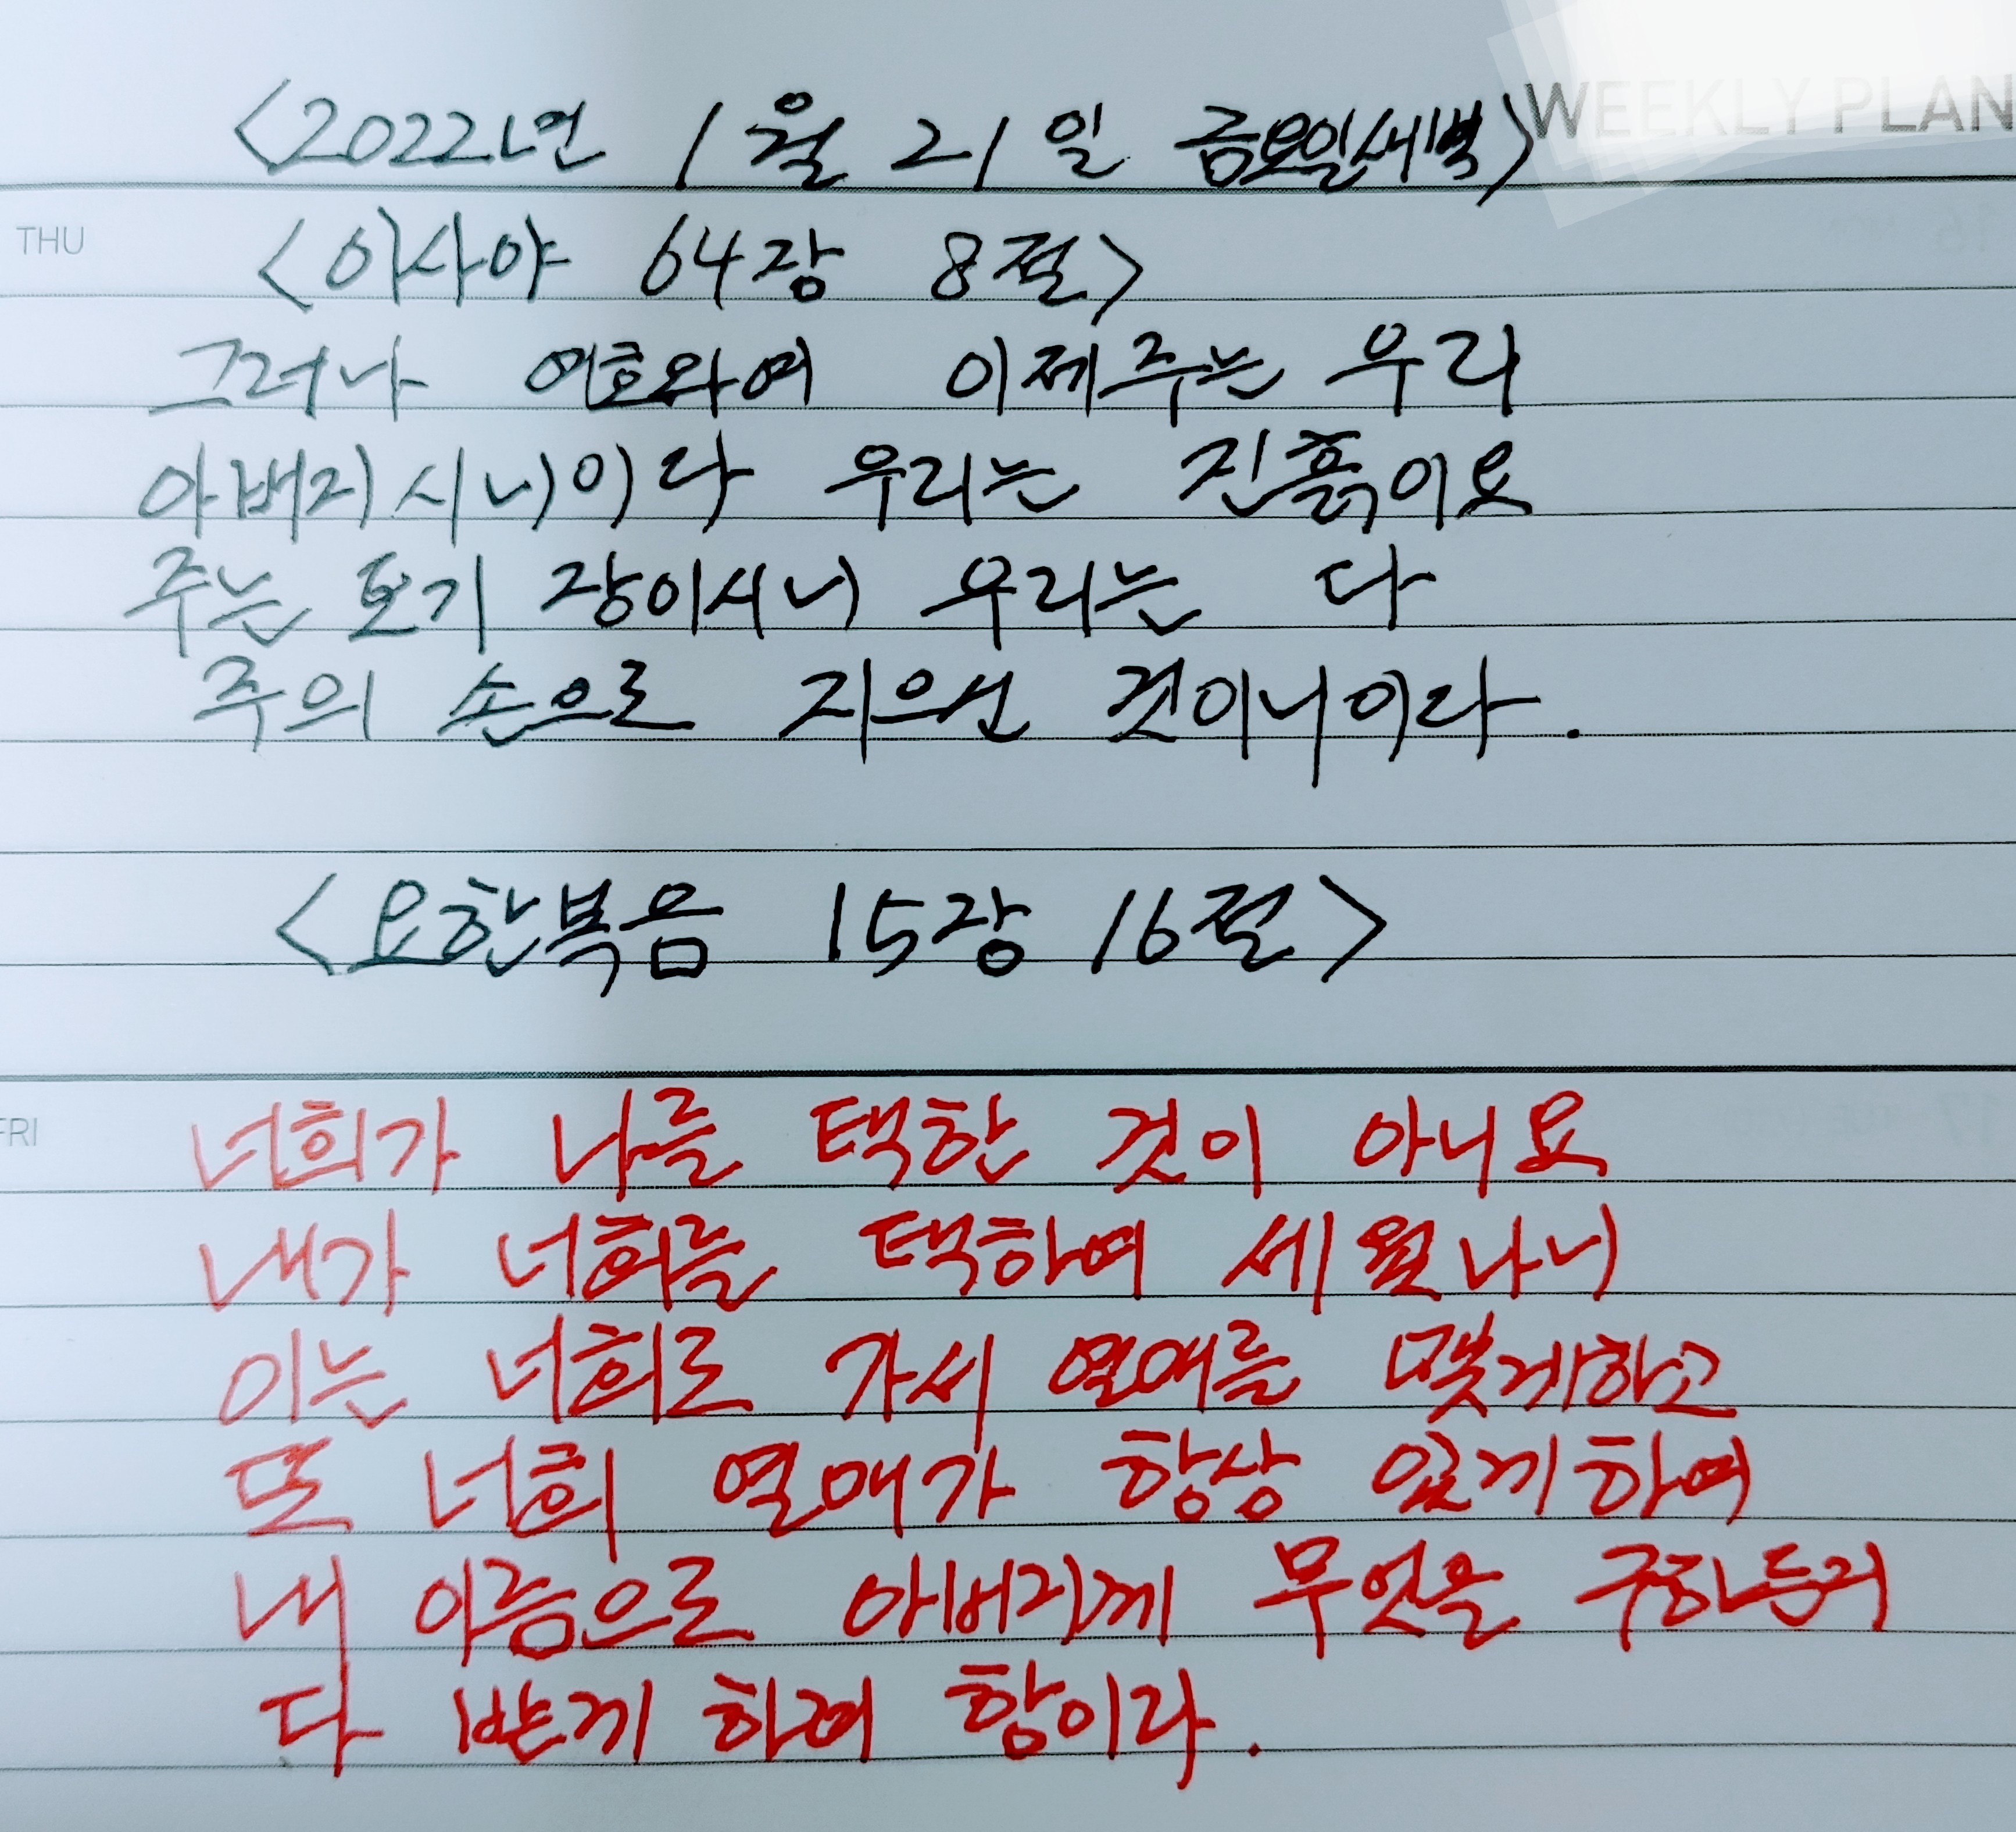 <2022년 1월 21일 금요일새벽>
WEEKLY PLAN
THU
<이사야 64장 8절>
그러나 여호와여 이제주는 우리
아버지시니이다 우리는 진흙이요
주는 토기 장이시니 우리는 다
주의 손으로 지으신 것이니이다.
<요한복음 15장 16절>
FRI
너희가 나를 택한 것이 아니요
내가 너희를 택하여 세웠나니
이는 너희로 가서 열매를 맺게하고
또 너희 열매가 항상 있게하여
내 이름으로 아버지께 무엇을 구하든지
다 받게 하려 함이라.